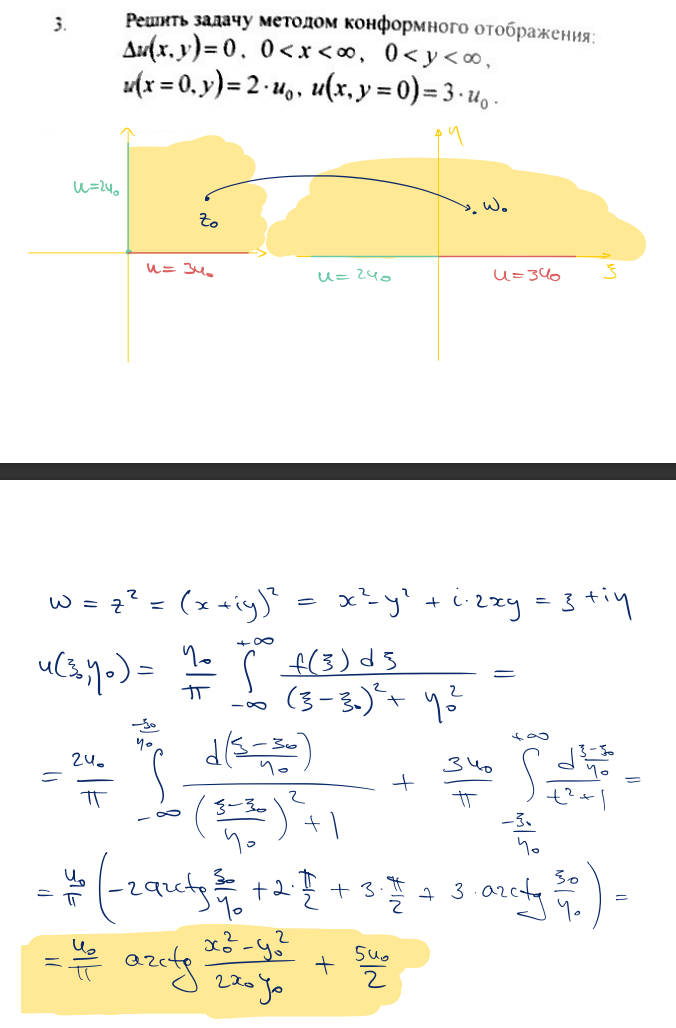 3. Решить задачу методом конформного отображения:
Δu(x, y) = 0, 0 < x < ∞, 0 < y < ∞,
u(x = 0, y) = 2 · u₀, u(x, y = 0) = 3 · u₀.
η
u=2u₀
z₀
w₀
u= 3u₀
u= 2u₀
u=3u₀
ξ
w = z² = (x+iy)² = x²-y² + i·2xy = ξ + iη
u(ξ₀,η₀) = η₀/π ∫_{-∞}^{+∞} f(ξ)dξ / ((ξ-ξ₀)² + η₀²) =
= 2u₀/π ∫_{-∞}^{-ξ₀/η₀} d((ξ-ξ₀)/η₀) / (((ξ-ξ₀)/η₀)² + 1) + 3u₀/π ∫_{-ξ₀/η₀}^{+∞} d (ξ-ξ₀)/η₀ / (t²+1) =
= u₀/π (-2arctg ξ₀/η₀ + 2·π/2 + 3·π/2 + 3·arctg ξ₀/η₀) =
= u₀/π arctg (x₀²-y₀²)/(2x₀y₀) + 5u₀/2